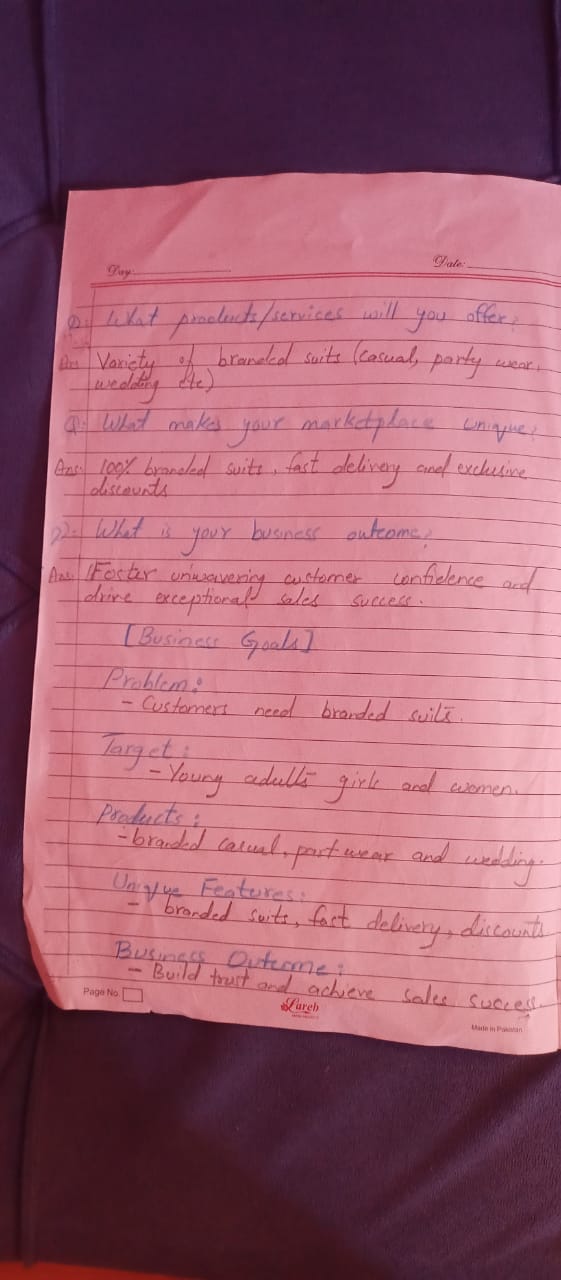 Day:
Date:
Q: What products/services will you offer?
Ans Variety of branded suits (casual, party wear,
wedding etc)
Q: What makes your marketplace unique?
Ans: 100% branded suits, fast delivery and exclusive
discounts
Q: What is your business outcome?
Ans: Foster unwavering customer confidence and
drive exceptional sales success.
[Business Goals]
Problem:
- Customers need branded suits.
Target:
- Young adults girls and women.
Products:
- branded casual, part wear and wedding.
Unique Features:
- branded suits, fast delivery, discounts
Business Outcome:
- Build trust and achieve sales success.
Page No.
Lareb
Made in Pakistan